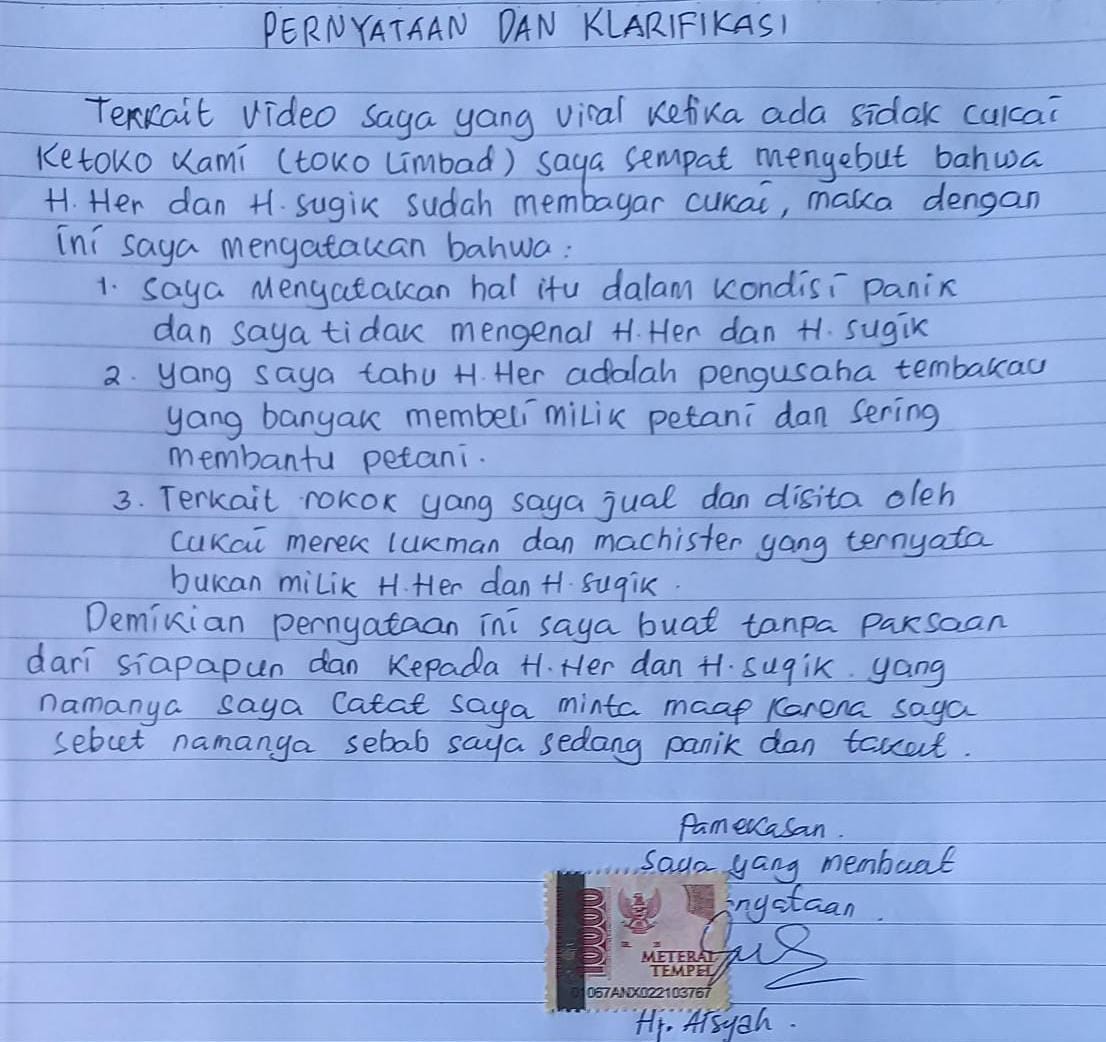 PERNYATAAN DAN KLARIFIKASI
Terkait video saya yang viral ketika ada sidak cukai
Ketoko kami (toko Limbad) saya sempat mengebut bahwa
H. Her dan H. sugik sudah membayar cukai, maka dengan
ini saya mengatakan bahwa :
1. saya Mengatakan hal itu dalam kondisi panik
dan saya tidak mengenal H. Her dan H. sugik
2. yang saya tahu H. Her adalah pengusaha tembakau
yang banyak membeli milik petani dan sering
membantu petani.
3. Terkait rokok yang saya jual dan disita oleh
cukai merek lukman dan machister yang ternyata
bukan milik H. Her dan H. sugik.
Demikian pernyataan ini saya buat tanpa paksaan
dari siapapun dan kepada H. Her dan H. sugik. yang
namanya saya catat saya minta maap karena saya
sebut namanya sebab saya sedang panik dan takut.
Pamekasan.
Saya yang membuat
nyataan.
10000
METERAI
TEMPEL
01067ANX022103767
Hj. Aisyah.